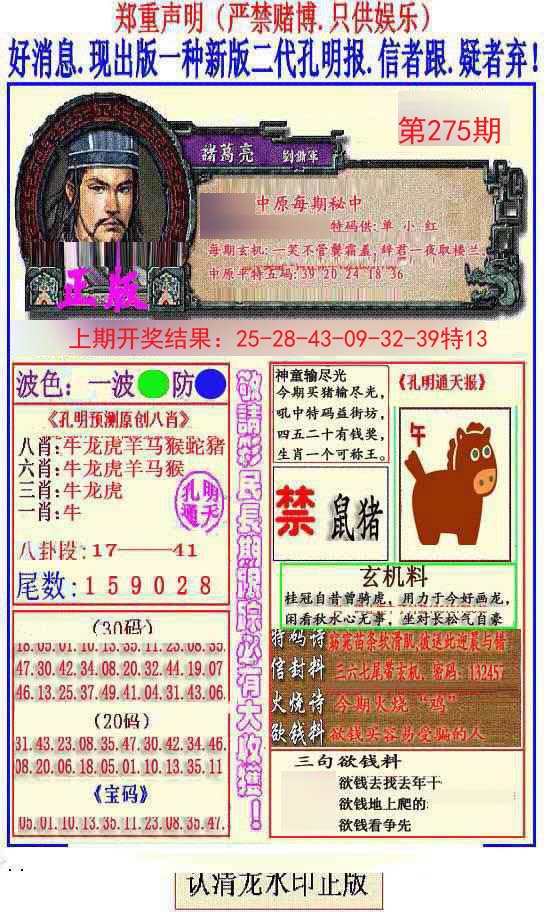 郑重声明（严禁赌博.只供娱乐）
好消息.现出版一种新版二代孔明报.信者跟.疑者弃!
第275期
諸葛亮 劉鐤軍
中原每期秘中
特码供:单 小 红
每期玄机:一笑不管霽霜盖,辞君一夜取楼兰.
中原平特五码:39 20 24 18 36
正版
上期开奖结果：25-28-43-09-32-39特13
波色：一波 防
《孔明预测原创八肖》
八肖:牛龙虎羊马猴蛇猪
六肖:牛龙虎羊马猴
三肖:牛龙虎
一肖:牛
孔明
通天
八卦段:17——41
尾数:159028
(30码)
18.05.01.10.13.35.11.23.08.35.
47.30.42.34.08.20.32.44.19.07
46.13.25.37.49.41.04.31.43.06
(20码)
31.43.23.08.35.47.30.42.34.46.
08.20.06.18.05.01.10.13.35.11
《宝码》
05.01.10.13.35.11.23.08.35.47.
敬請彩民長期跟踪必有大收獲!
神童输尽光
今期买猪输尽光，
吼中特码益街坊，
四五二十有钱奖，
生肖一个可称王。
《孔明通天报》
午
禁 鼠猪
玄机料
桂冠自昔曾骑虎，用力于今好画龙，
闲看秋水心无事，坐对长松气自豪
特码诗
信封料 三六七尾带玄机，密码：132457
火烧诗 今期火烧“鸡”
欲钱料 欲钱买容易受骗的人
三句欲钱料
欲钱去找去年十
欲钱地上爬的
欲钱看争先
认清龙水印正版